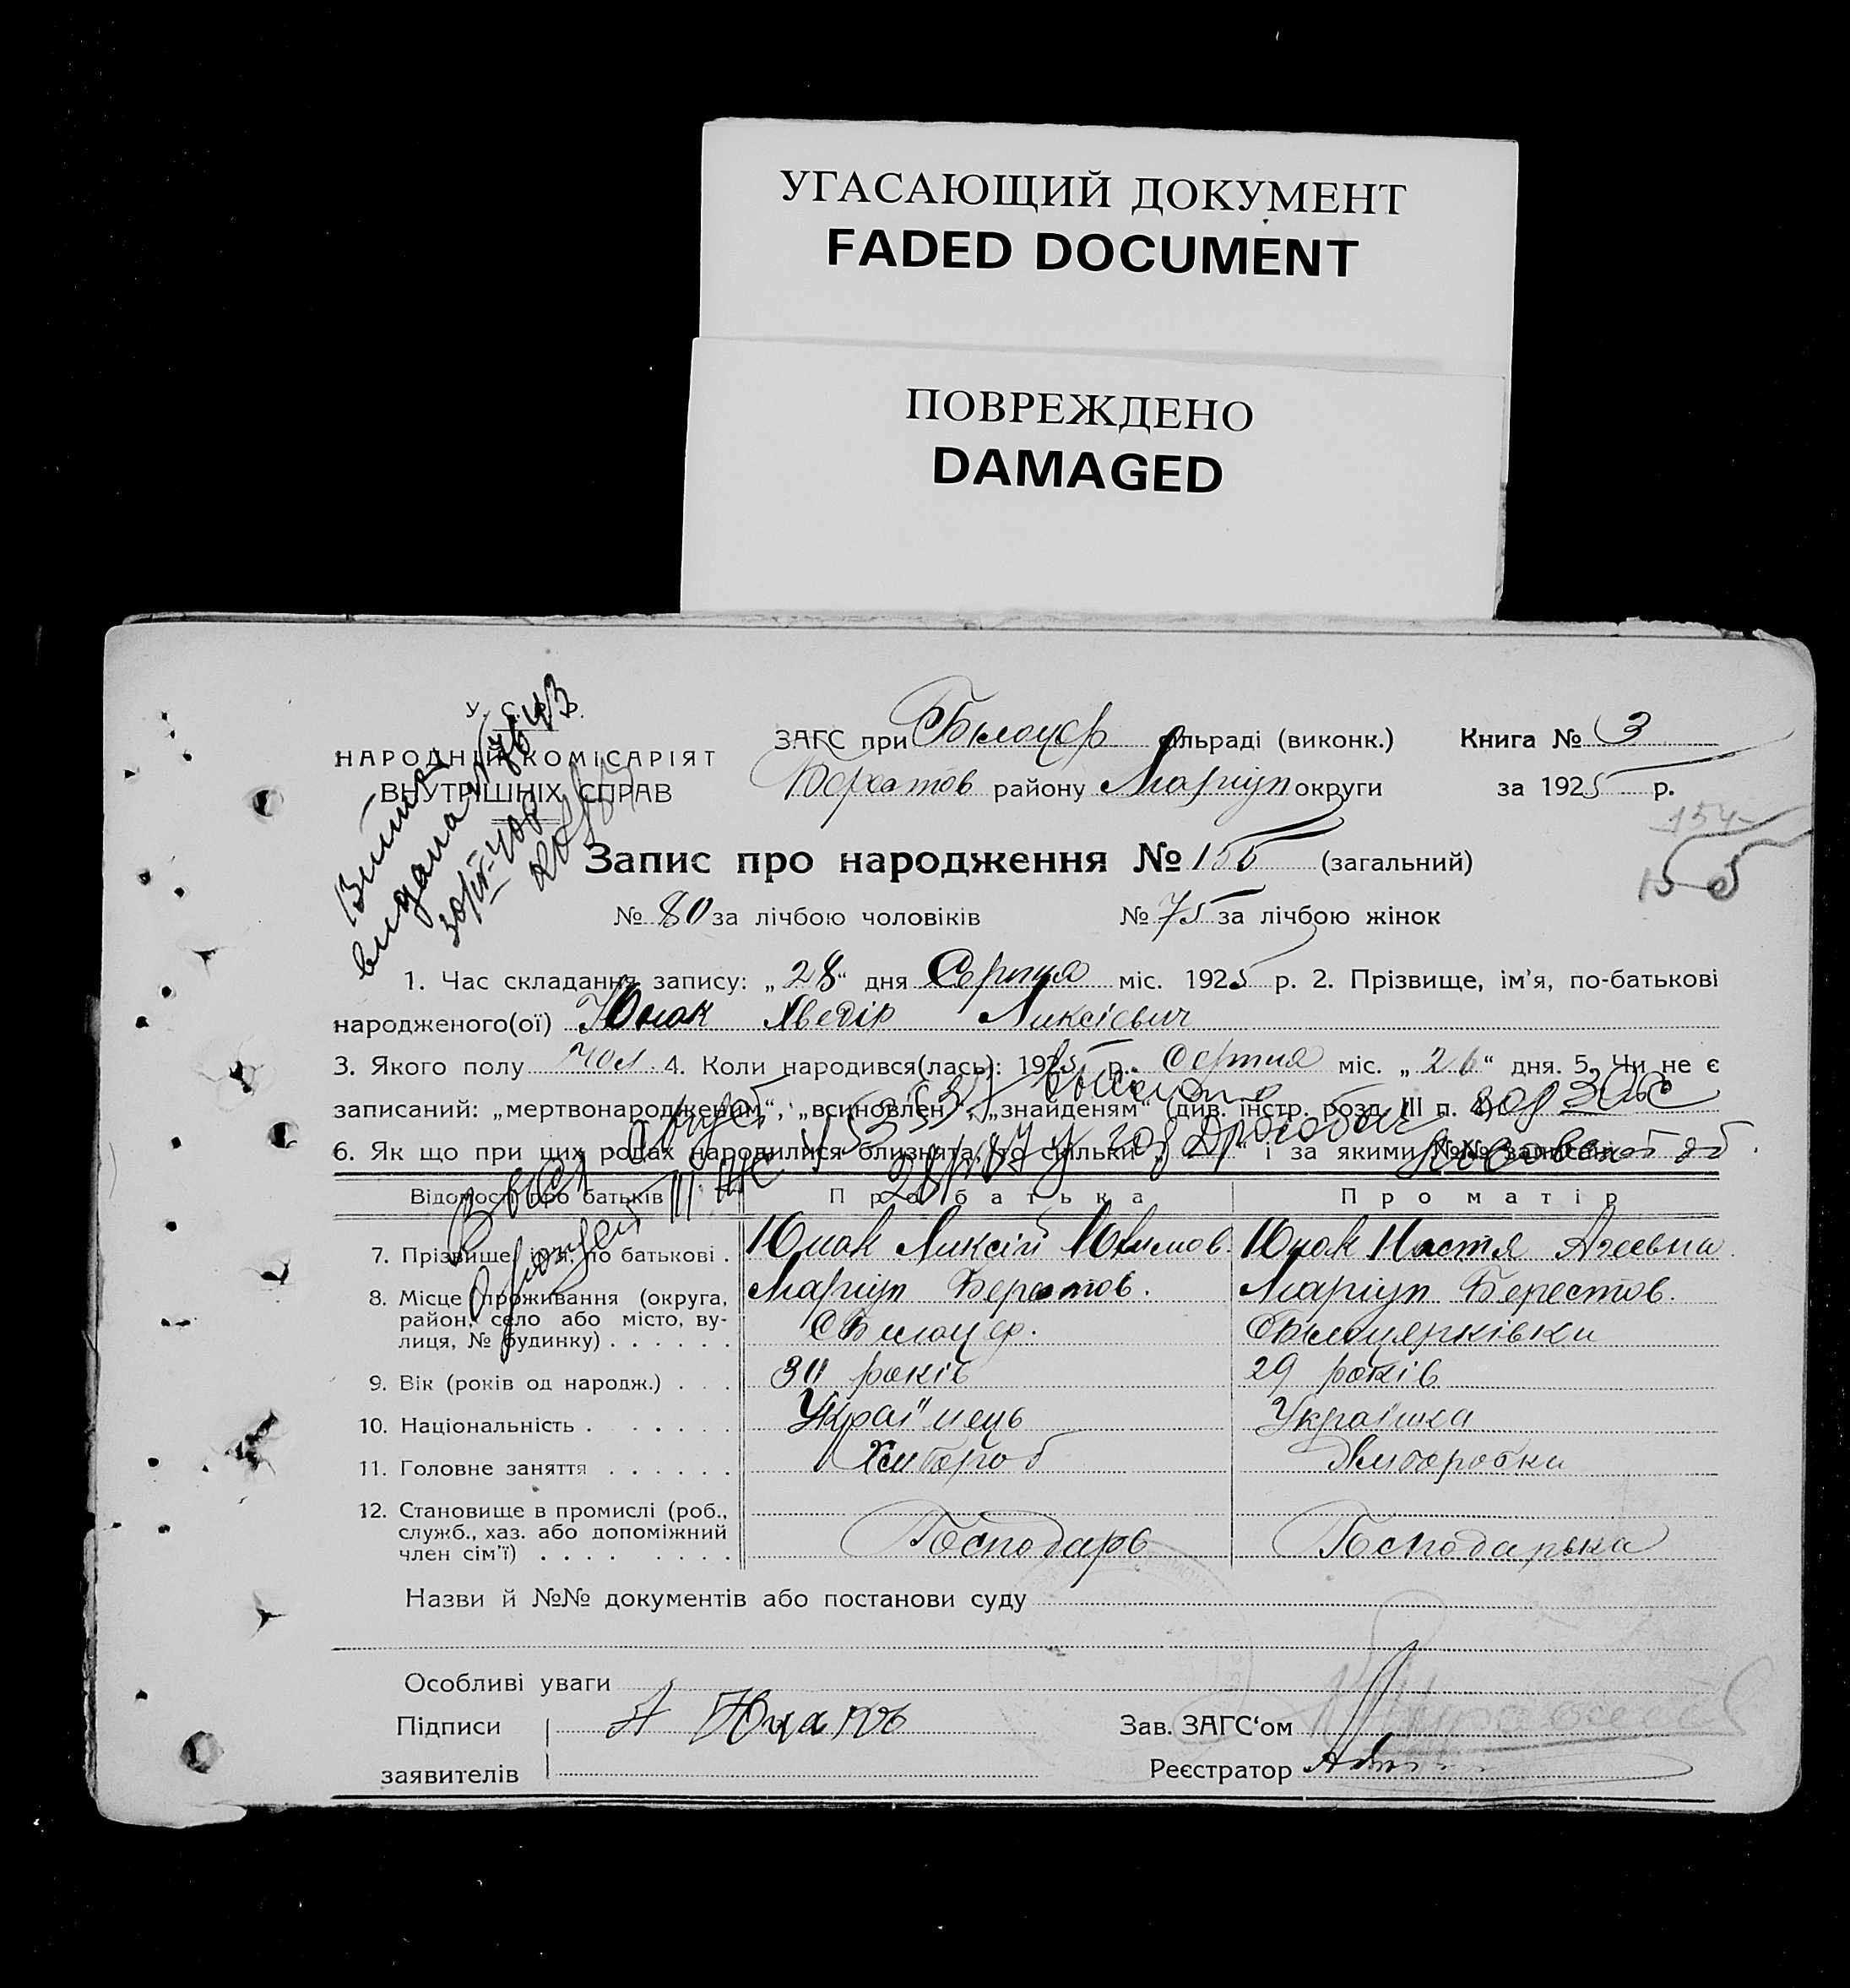 УГАСАЮЩИЙ ДОКУМЕНТ
FADED DOCUMENT
ПОВРЕЖДЕНО
DAMAGED
У. С. Р. Р.
НАРОДНІЙ КОМІСАРІЯТ
ВНУТРІШНІХ СПРАВ
ЗАГС при С Білоцер сільраді (виконк.) Книга № 3
Берестов району Маріуп округи за 1925 р.
154
155
Запис про народження № 155 (загальний)
№ 80 за лічбою чоловіків № 75 за лічбою жінок
1. Час складання запису: „28“ дня Серпня міс. 1925 р. 2. Прізвище, ім'я, по-батькові
народженого(ої) Юнак Хведір Ликсієвич
3. Якого полу чол. 4. Коли народився(лась): 1925 р. Серпня міс. „26“ дня. 5. Чи не є
записаний: „мертвонародженим“, „всиновлен.“, „знайденям“ (див. інстр. розд. III п.
6. Як що при цих родах народилися близнята, то скільки „ “ і за якими №№ записані
Відомості про батьків Про батька Про матір
7. Прізвище, ім'я, по батькові . Юнак Ликсій Юхимов. Юнак Настя Агеевна
8. Місце проживання (округа, район, село або місто, вулиця, № будинку) Маріуп Берестов. Маріуп Берестов.
С Білоцер. С Білоцерківки
9. Вік (років од народж.) . . . 30 років 29 років
10. Національність . . . . . . Українець Українка
11. Головне заняття . . . . . . Хлібороб Хліборобка
12. Становище в промислі (роб., служб., хаз. або допоміжний член сім'ї) . . . . Господарь Господарька
Назви й №№ документів або постанови суду
Особливі уваги
Підписи А Юнакъ Зав. ЗАГС‘ом
заявителів Реєстратор